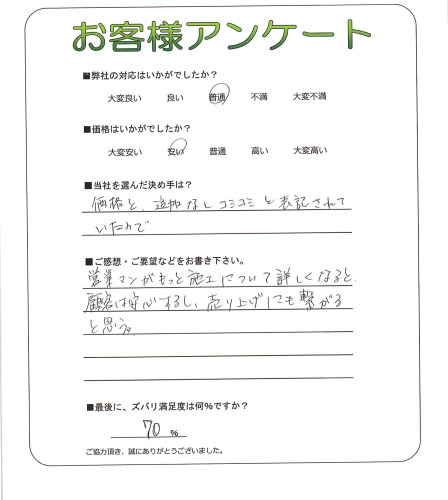 お客様アンケート
■弊社の対応はいかがでしたか？
大変良い 良い 普通 不満 大変不満
■価格はいかがでしたか？
大変安い 安い 普通 高い 大変高い
■当社を選んだ決め手は？
価格と、追加なしコミコミと表記されて
いたので
■ご感想・ご要望などをお書き下さい。
営業マンがもっと施工について詳しくなると、
顧客は安心するし、売り上げにも繋がる
と思う。
■最後に、ズバリ満足度は何％ですか？
70 ％
ご協力頂き、誠にありがとうございました。